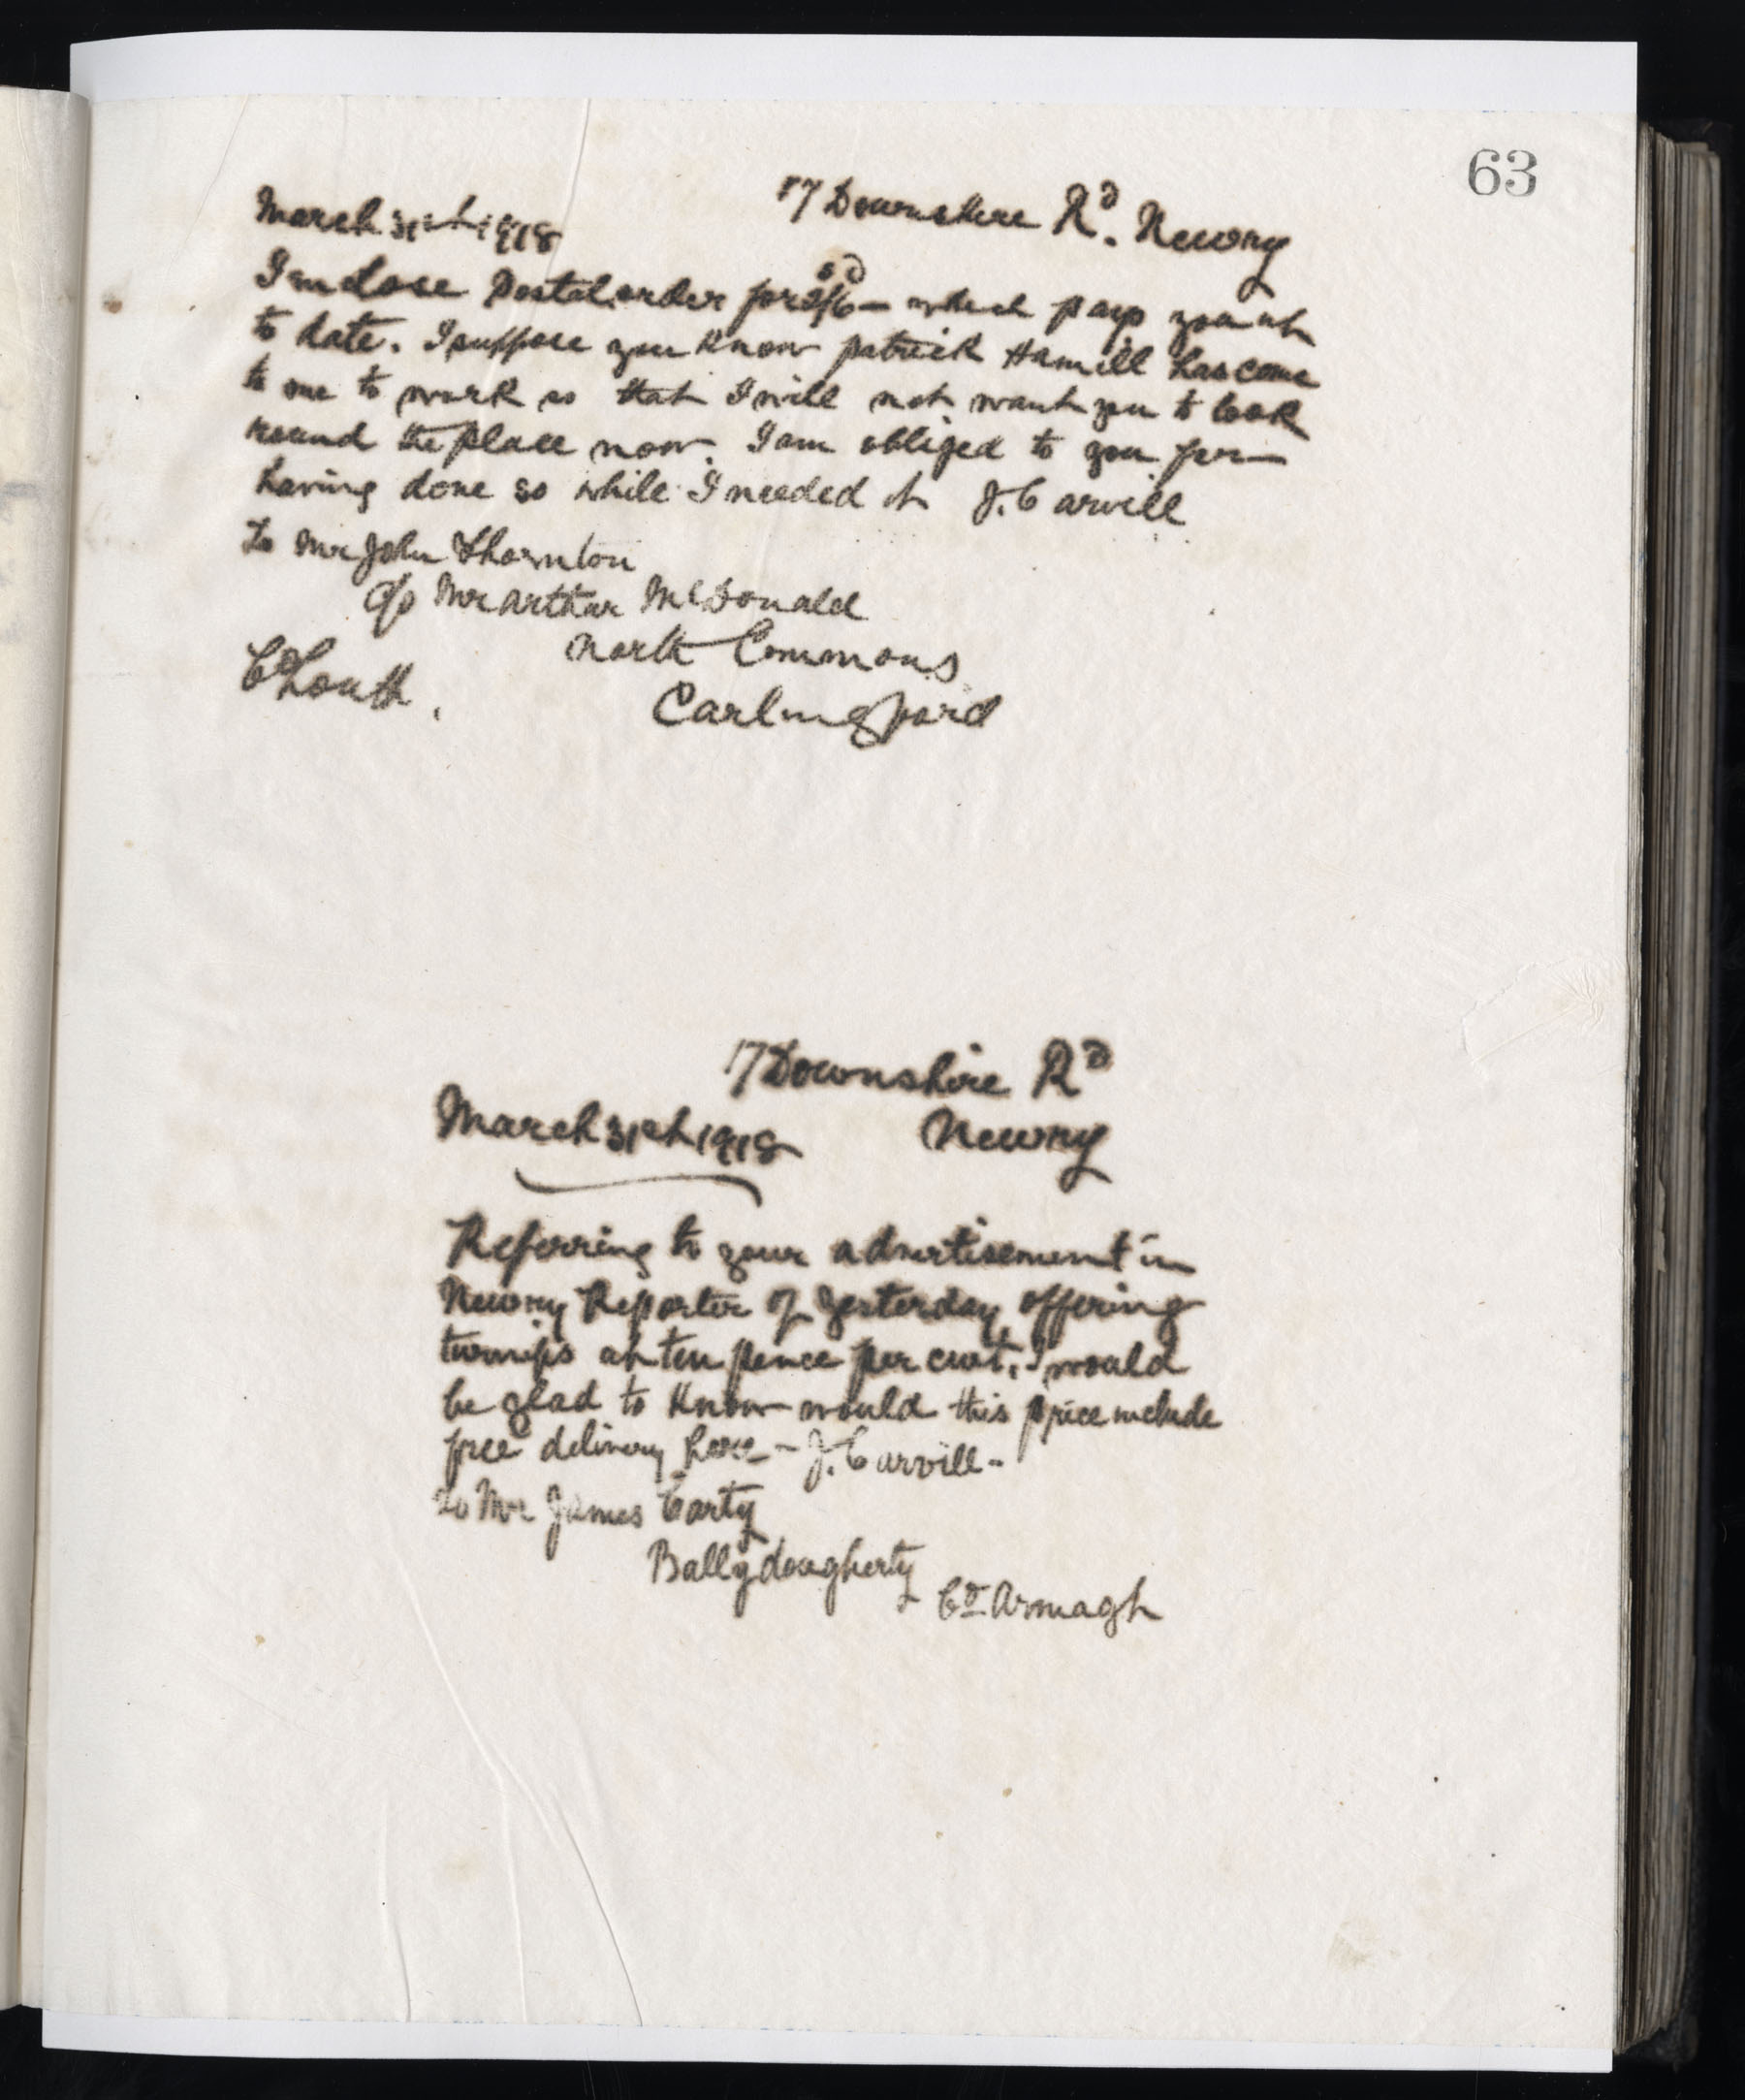 63
17 Downshire Rd. Newry
March 31st 1918
I enclose Postal order for 2s/6d – which pays you up
to date. I suppose you know patrick Hamill has come
to me to work so that I will not want you to look
round the place now. I am obliged to you for
having done so while I needed it J. Carvill
To Mr John Thornton
c/o Mr Arthur McDonald
North Commons
Co Louth.
Carlingford
17 Downshire Rd
March 31st 1918 Newry
Referring to your advertisement in
Newry Reporter of yesterday offering
turnips at ten pence per cwt. I would
be glad to know would this price include
free delivery here – J. Carvill –
To Mr James Carty
Ballydougherty
Co Armagh